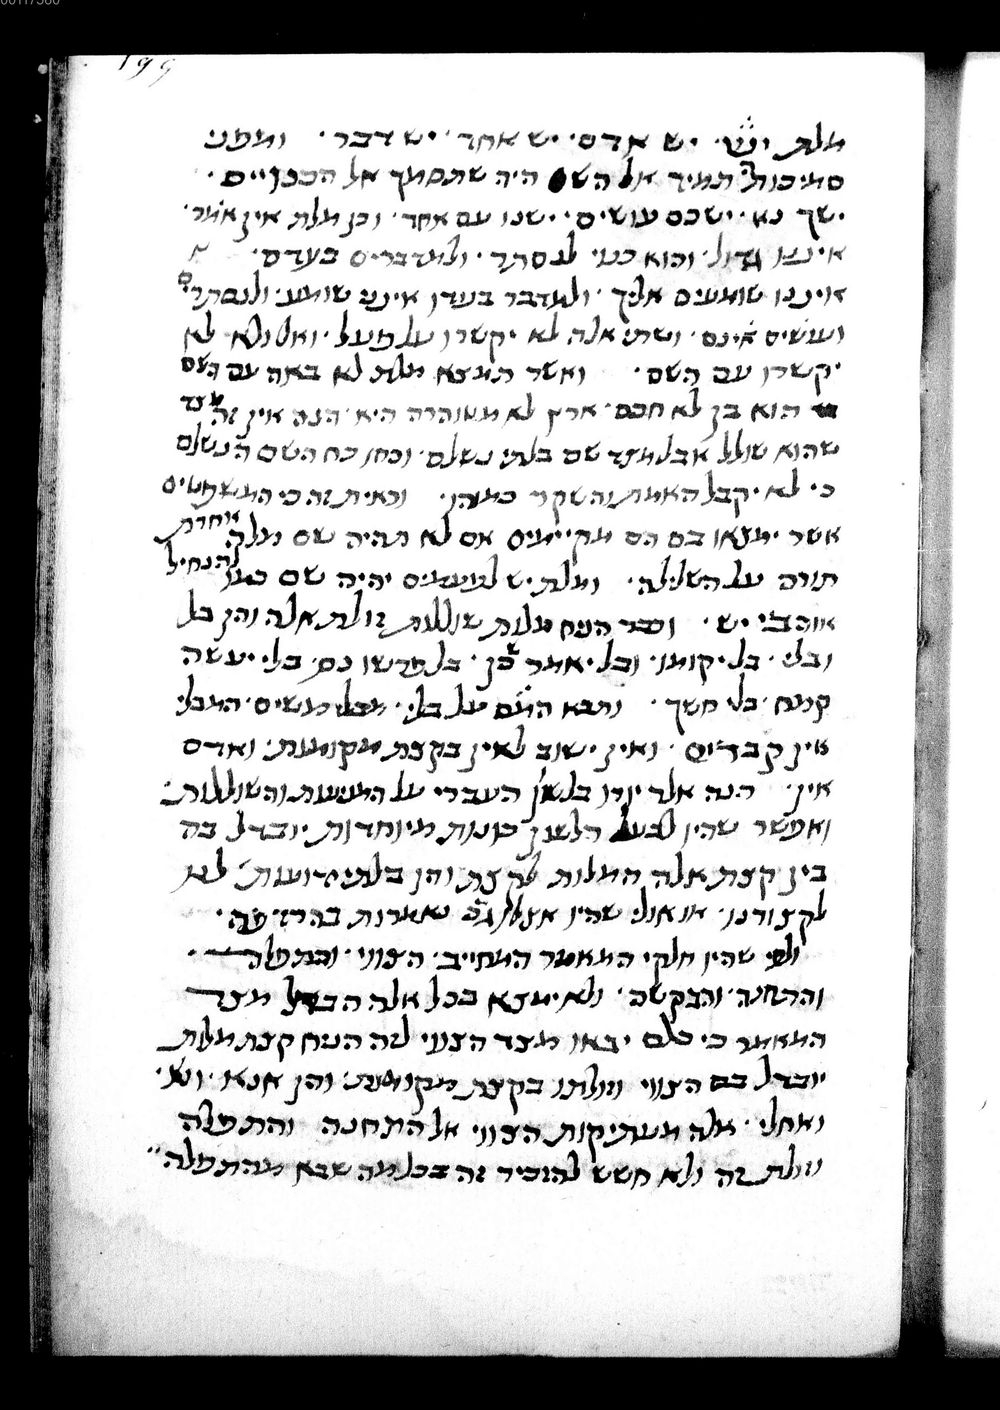 199
מלת יש יש אדם יש אחד יש דבר ומפני
סמיכותה תמיד אל השם היה שתסמך אל הכנויים
ישך נא ישכם עושים ישנו עם אחד וכן מלת אין אמר
איננו גדול והוא כנוי לנסתר ולמדברים בעדם
איננו שומעים אליך ולמדבר בעדו אינני שומע ולנסתרים
ועושים אינם ושתי אלה לא יקשרו על פועל ואל ולא לא
יקשרו עם השם ואשר תמצא מלת לא באה עם השם
הוא בן לא חכם ארץ לא מטוהרה היא הנה אין זה מצד
שהוא שולל אבל מצד שם בלתי נשלם וכחו כח השם הנשלם
כי לא יקבל האמת והשקר כמוהו וראית זה כי המשפטים
אשר ימצאו בם הם מקיימים אם לא תהיה שם מלה אחרת
תורה על השלילה ומלת יש לפעמים יהיה שם כמו להנחיל
אוהבי יש וכבר הניח מלות שוללות זולת אלה והן בל
ובלי בל יקומו ובל יאמר כן בל פרשו נס בלי יעשה
קמח בלי חשך ותבא המם על בלי מבלי משים המבלי
אין קברים ואין ישוב לאין בקצת מקומות ואדם
אין הנה אלה יורו בלשון העברי על המניעות והשוללות
ואפשר שהיו לבעל הלשון כונות מיוחדות יובדל בה
בין קצת אלה המלות לקצת והן בלתי ידועות לנו
לקצורנו או אולי שהיו אצלן גם נאמרות בהרדפה
ולפי שהיו חלקי המאמר המחייב הצווי והתפלה
והתחנה והבקשה ולא ימצא בכל אלה הבדל מצד
המאמר כי כלם יבאו מצד הצווי לזה הניח קצת מלות
יובדל בם הצווי וזולתו בקצת מקומות והן אנא ונא
ואחלי אלה מעתיקות הצווי אל התחנה והתפלה
וזולת זה ולא חשש להזכיר זה בכל מה שבא מהתפלה